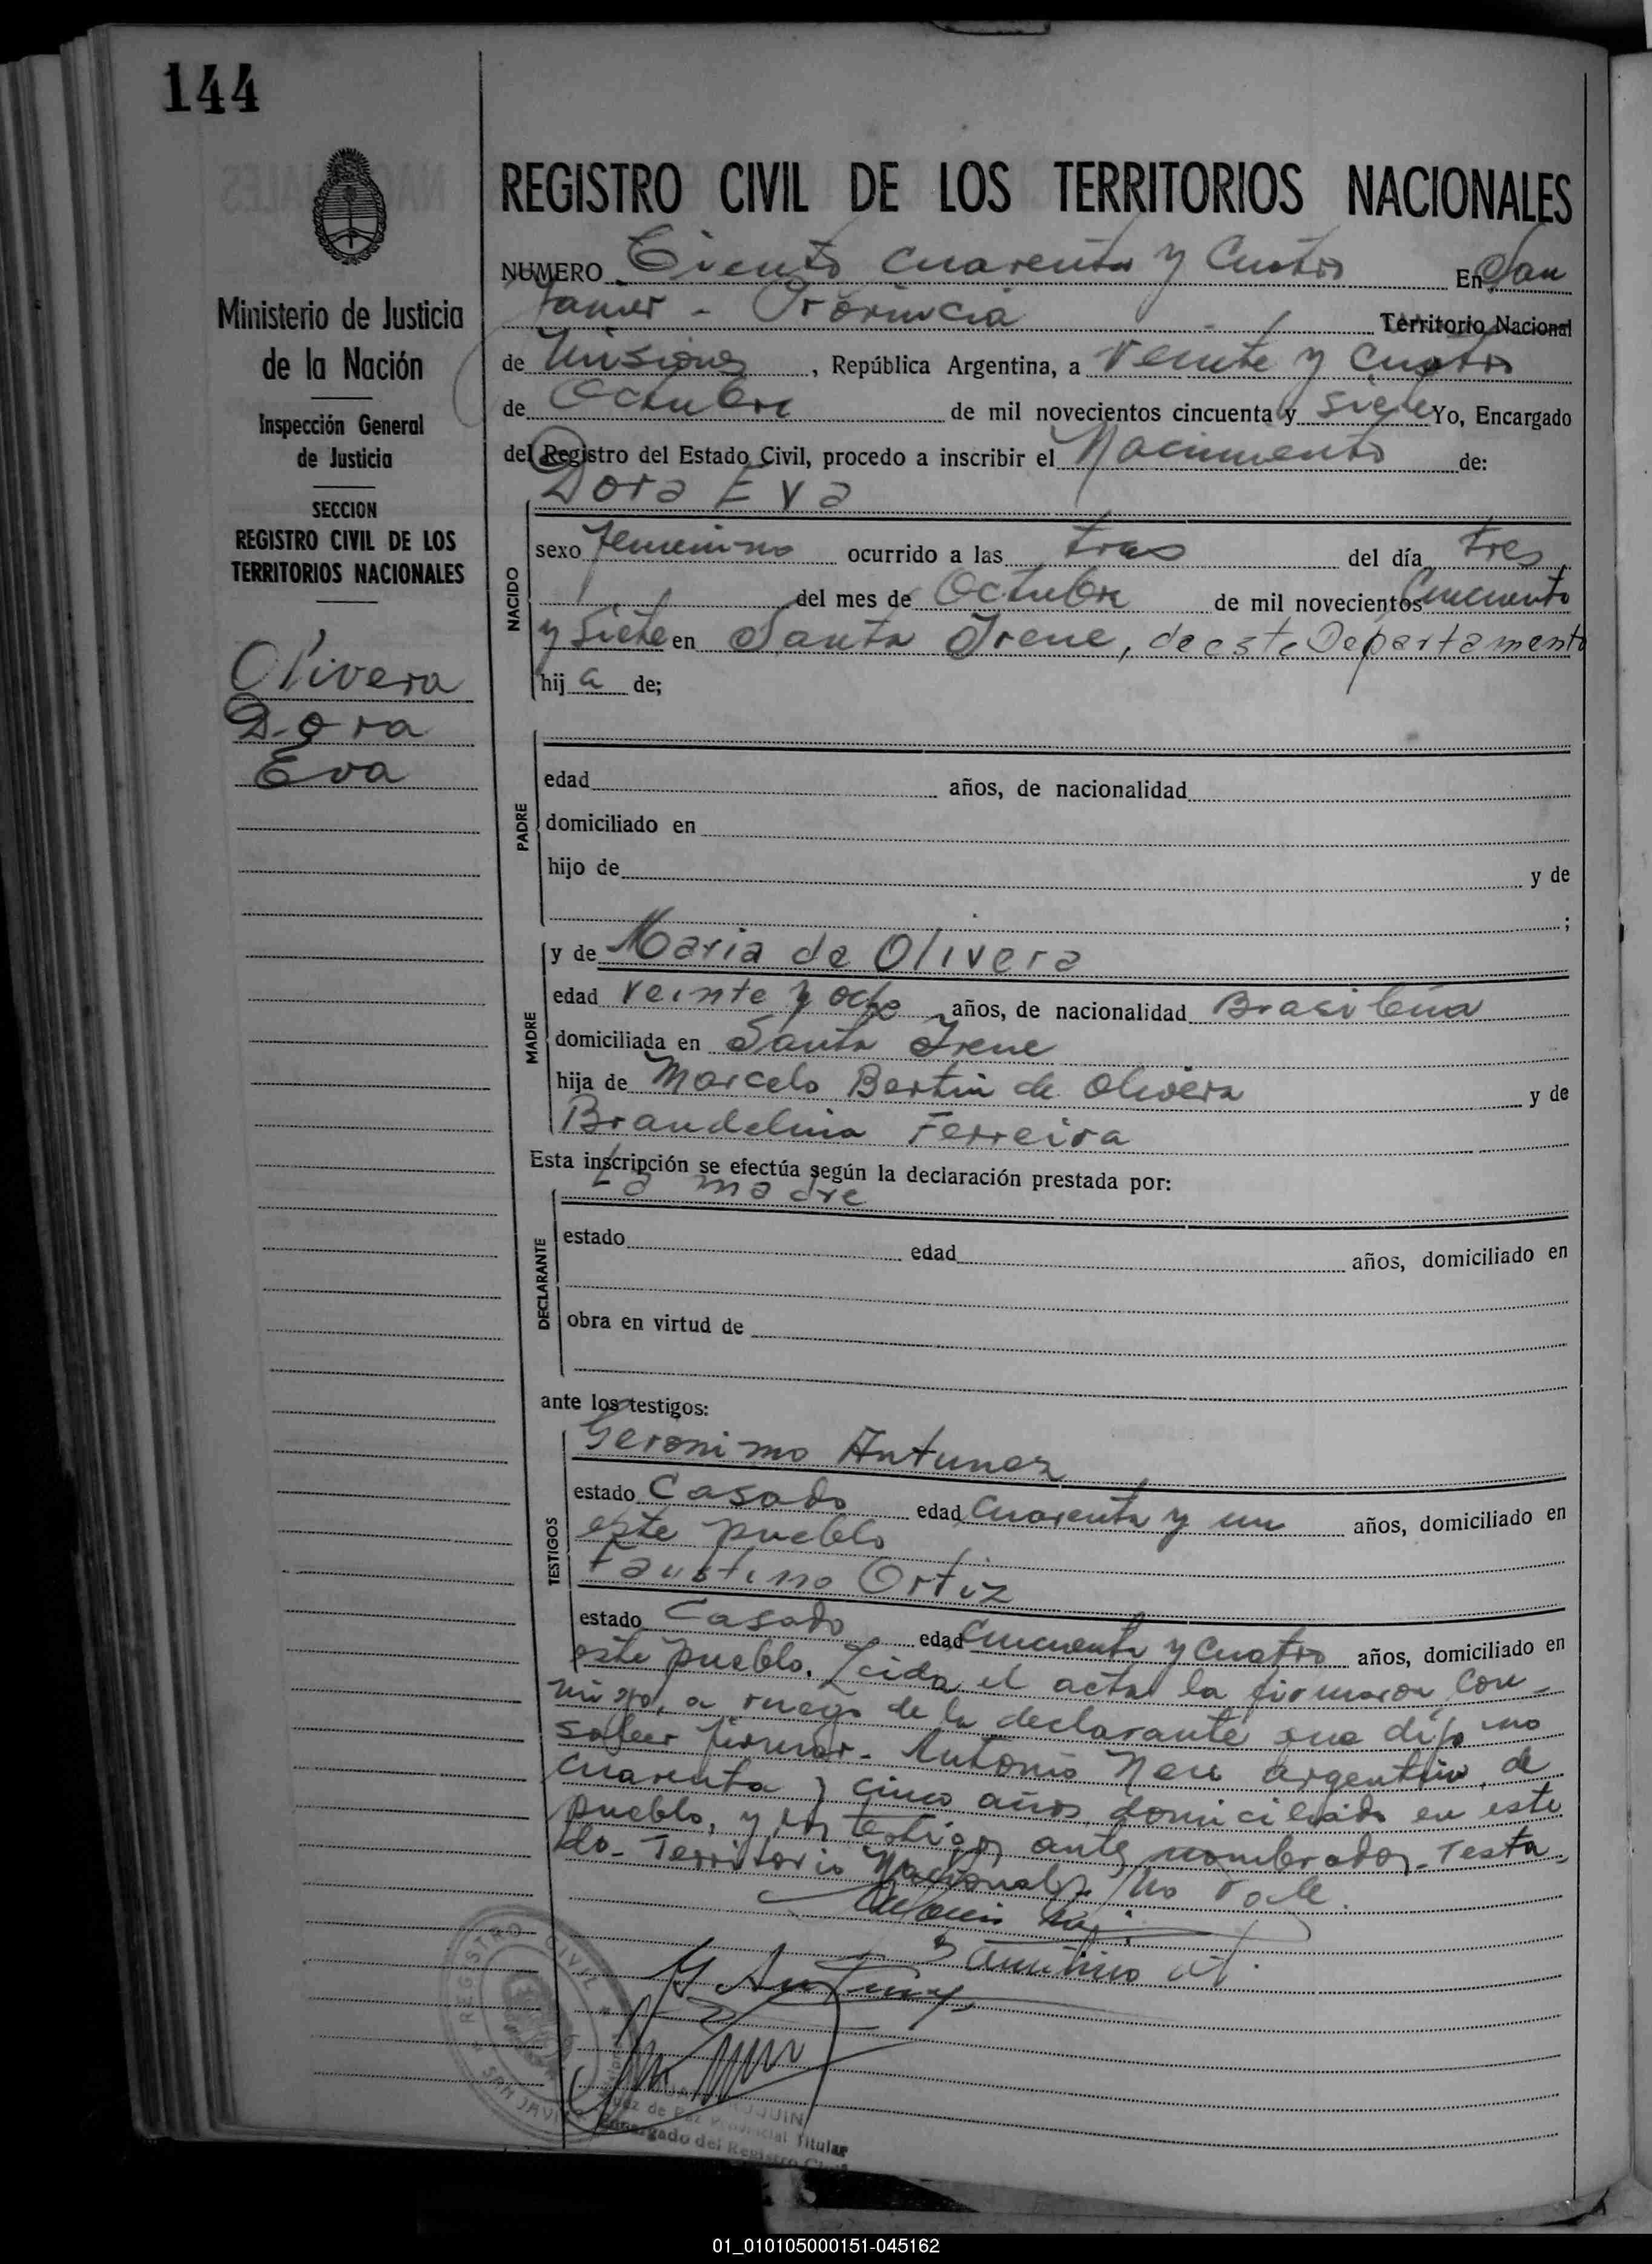 144
REGISTRO CIVIL DE LOS TERRITORIOS NACIONALES
Ministerio de Justicia
de la Nación
Inspección General
de Justicia
SECCION
REGISTRO CIVIL DE LOS
TERRITORIOS NACIONALES
Olivera
Dora
Eva
NUMERO Ciento Cuarenta y Cuatro En San
Javier - Provincia Territorio Nacional
de Misiones, República Argentina, a veinte y cuatro
de Octubre de mil novecientos cincuenta y siete Yo, Encargado
del Registro del Estado Civil, procedo a inscribir el Nacimiento de:
Dora Eva
NACIDO
sexo femenino ocurrido a las tres del día tres
del mes de Octubre de mil novecientos Cincuenta
y Siete en Santa Irene, de este Departamento
hij a de;
PADRE
edad años, de nacionalidad
domiciliado en
hijo de y de
;
MADRE
y de Maria de Olivera
edad veinte y ocho años, de nacionalidad Brasileña
domiciliada en Santa Irene
hija de Marcelo Bertin de Olivera y de
Brandelina Ferreira
Esta inscripción se efectúa según la declaración prestada por:
La madre
DECLARANTE
estado edad años, domiciliado en
obra en virtud de
ante los testigos:
TESTIGOS
Geronimo Antunez
estado Casado edad Cuarenta y un años, domiciliado en
este pueblo
Faustino Ortiz
estado Casado edad Cincuenta y Cuatro años, domiciliado en
este pueblo. Leida el acta la firmaron Con-
migo, a ruego de la declarante que dijo no
saber firmar - Antonio argentino, de
Cuarenta y cinco años, domiciliado en este
pueblo, y los testigos antes nombrados - Testa-
do - Territorio Nacional / No vale
REGISTRO CIVIL
SAN JAVIER
Juez de Paz Provincial Titular
Encargado del Registro Civil
01_010105000151-045162